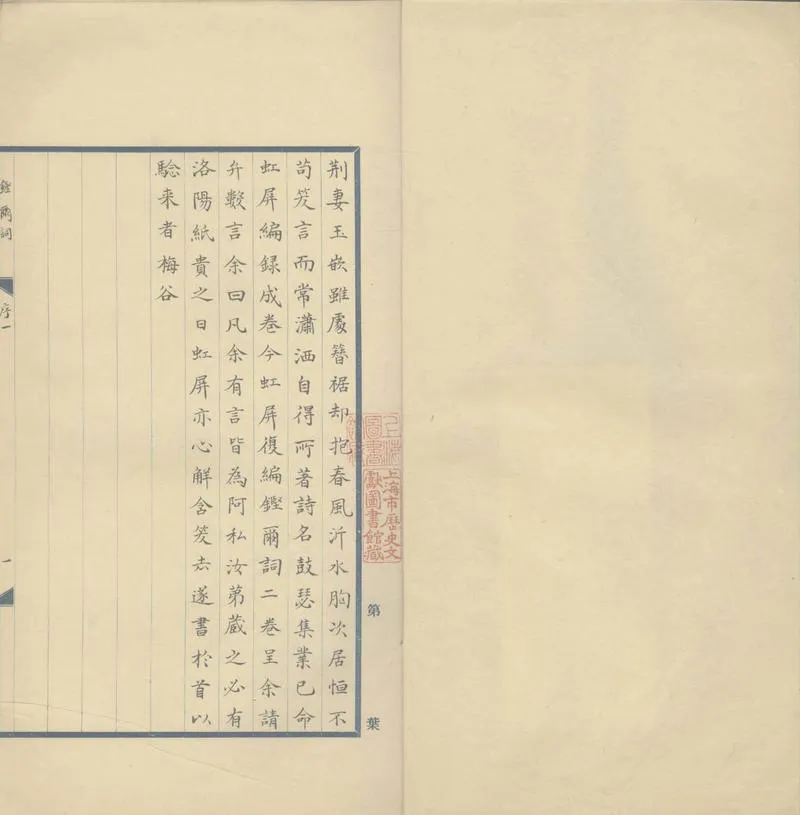 荆妻玉嵌雖處簪裾却抱春風沂水胸次居恒不
苟笑言而常瀟洒自得所著詩名鼓瑟集業已命
虹屏編録成卷今虹屏復編鏗爾詞二卷呈余請
弁數言余曰凡余有言皆為阿私汝苐蔵之必有
洛陽紙貴之日虹屏亦心解含笑去遂書於首以
驗来者梅谷
鏗爾詞
序一
一
第
葉
上海市歷史文
獻圖書館藏
上海
圖書
館藏